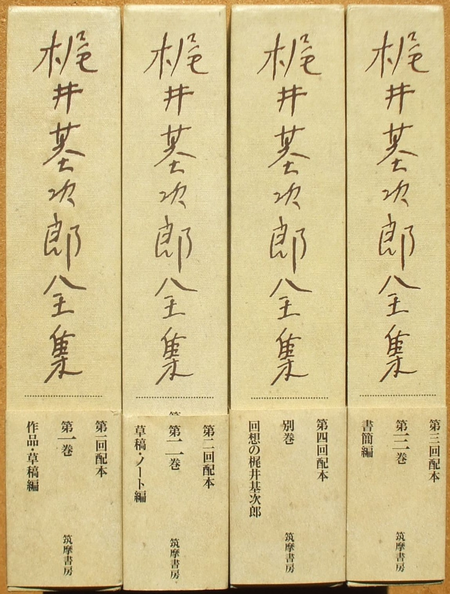 梶井基次郎全集
第一回配本
第一巻
作品・草稿編
筑摩書房
梶井基次郎全集
第二回配本
第二巻
草稿・ノート編
筑摩書房
梶井基次郎全集
第四回配本
別巻
回想の梶井基次郎
筑摩書房
梶井基次郎全集
第三回配本
第三巻
書簡編
筑摩書房